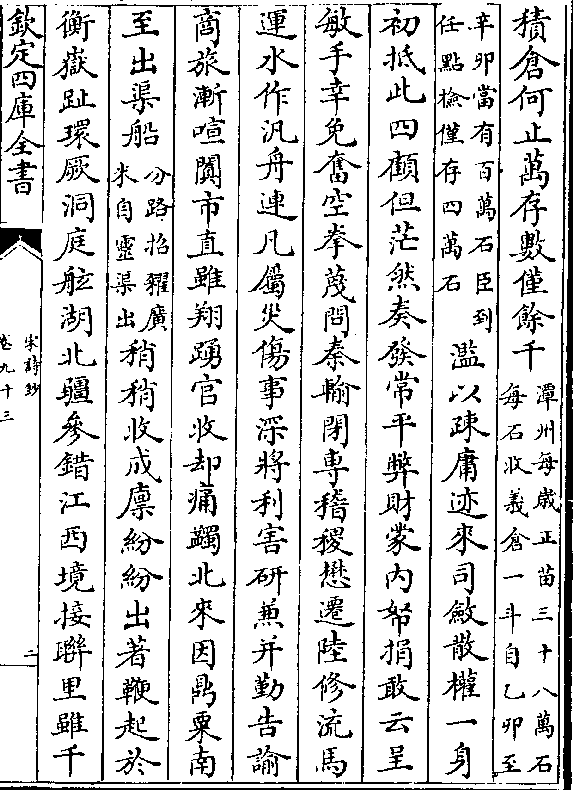 積倉何止萬存數僅餘千潭州每歳正苗三十八萬石
每石收義倉一斗自乙卯至
辛卯當有百萬石臣到
任點檢僅存四萬石濫以疎庸迹來司斂散權一身
初抵此四顧但茫然奏發常平弊財蒙内帑捐敢云呈
敏手幸免奮空拳蔑問秦輸閉専稽稷懋遷陸修流馬
運水作汎舟連凡屬災傷事深將利害研兼并勤告諭
商旅漸喧闐市直雖翔踴官收却痛蠲北來因鼎粟南
至出渠船分路招糴廣
米自靈渠出稍稍收成廪紛紛出著鞭起於
衡嶽趾環厥洞庭舷湖北疆參錯江西境接聯里雖千
欽定四庫全書
宋詩鈔
卷九十三
二